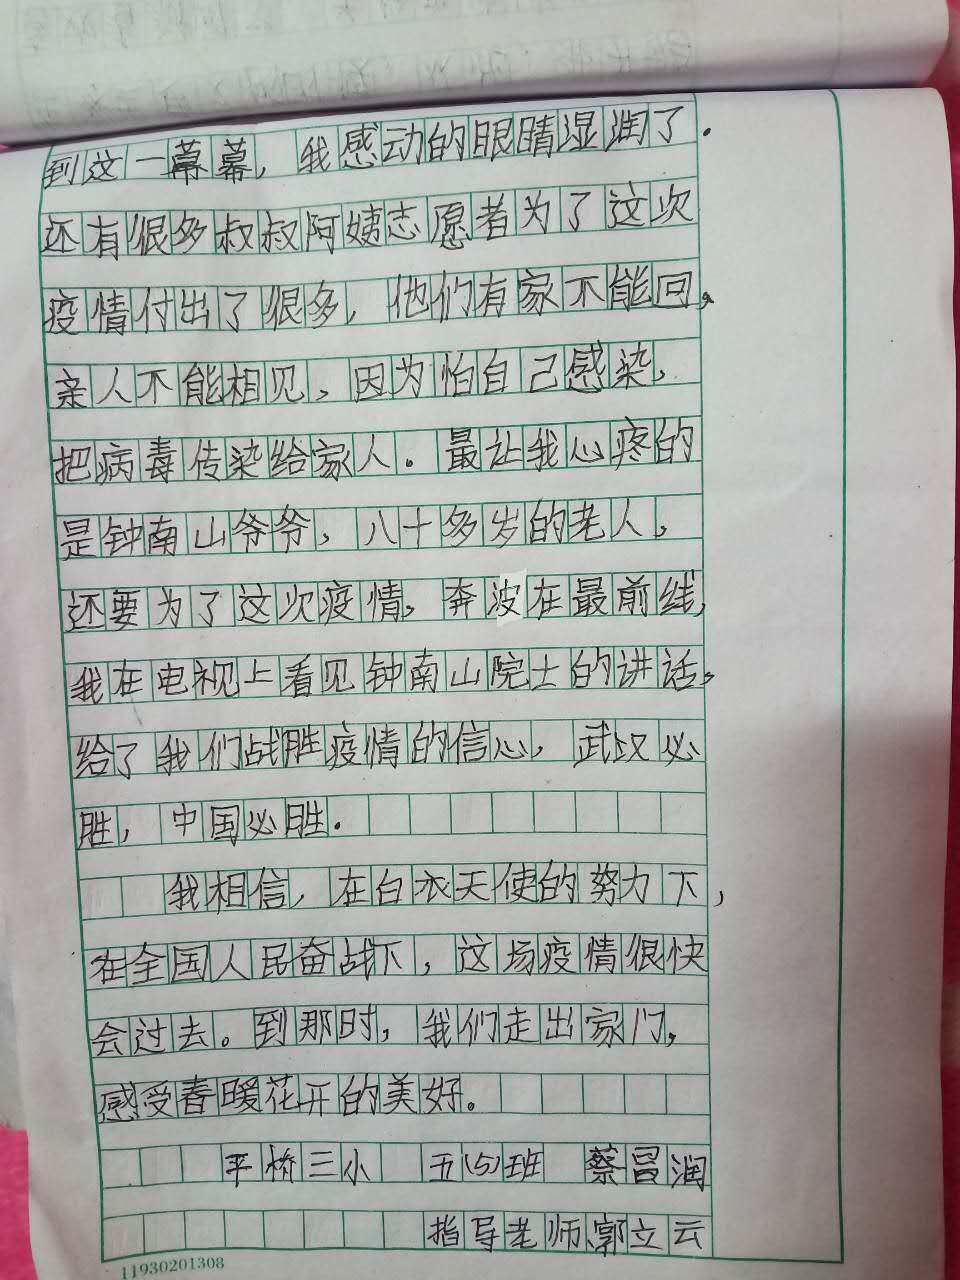 到这一幕幕，我感动的眼睛湿润了．
还有很多叔叔阿姨志愿者为了这次
疫情付出了很多，他们有家不能回，
亲人不能相见，因为怕自己感染，
把病毒传染给家人。最让我心疼的
是钟南山爷爷，八十多岁的老人，
还要为了这次疫情，奔波在最前线，
我在电视上看见钟南山院士的讲话，
给了我们战胜疫情的信心，武汉必
胜，中国必胜．
我相信，在白衣天使的努力下，
在全国人民奋战下，这场疫情很快
会过去。到那时，我们走出家门，
感受春暖花开的美好。
平桥三小 五(5)班 蔡冒润
指导老师:郭立云
11930201308